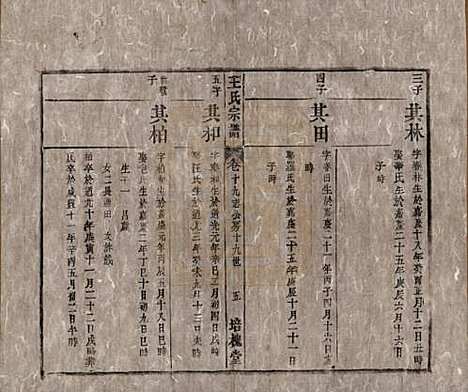 三子
其林
字春林生於嘉慶十八年癸酉五月十二日丑時
娶葉氏生於嘉慶二十五年庚辰六月十六日
子時
四子
其田
字春田生於嘉慶二十一年丙子四月十六日亥
時
娶羅氏生於嘉慶二十五年十月二十一日
子時
王氏宗譜
卷十九老公房十九世
五
培槐堂
五子
其和
字春和生於道光元年辛巳二月初四日戌時
娶汪氏生於道光三年癸未九月十三日未時
子
其柏
字柏生於嘉慶元年丙辰五月十八日巳時
娶氏生於嘉慶二年丁巳十月初九日巳時
生子一 昌
女二長適田 次
柏卒於道光十年庚寅十一月二十三日戌時葬
氏卒於咸豐十一年辛酉五月初二日午時